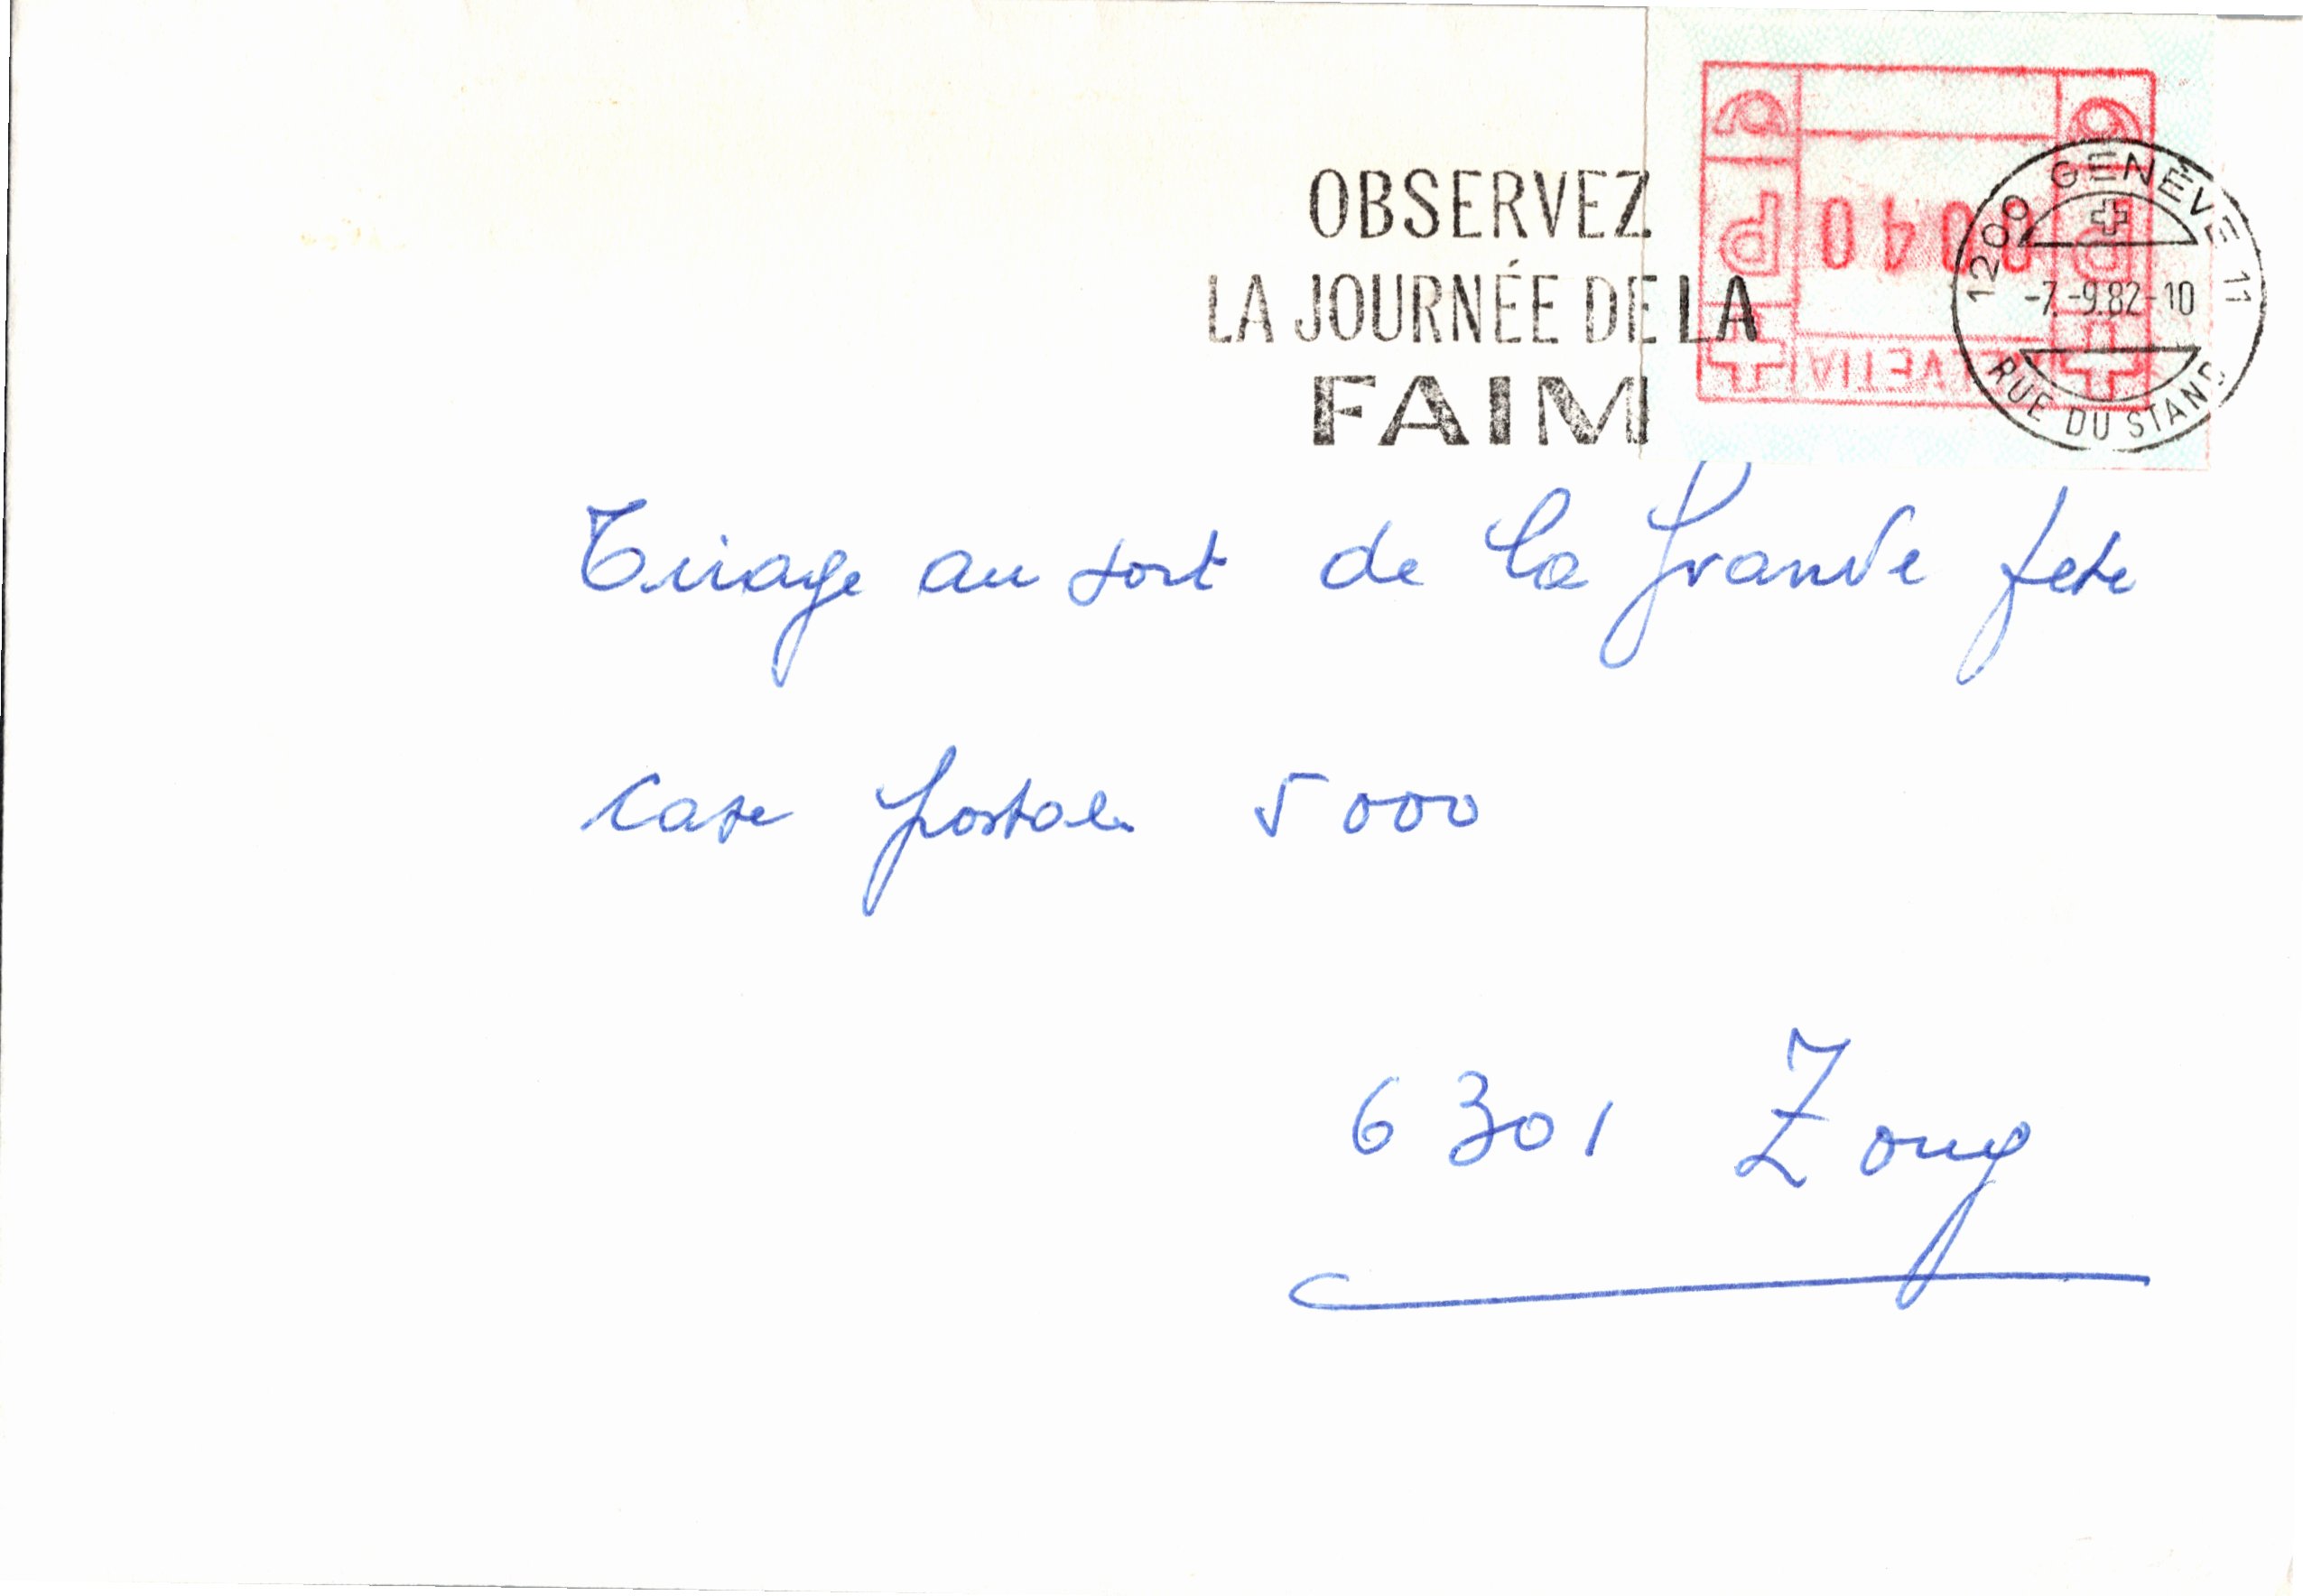 OBSERVEZ
LA JOURNÉE DE LA
FAIM
P 0040 P
HELVETIA
1200 GENÈVE 11
-7.-9.82-10
RUE DU STAND
Tirage au sort de la grande fete
case postale 5000
6301 Zoug